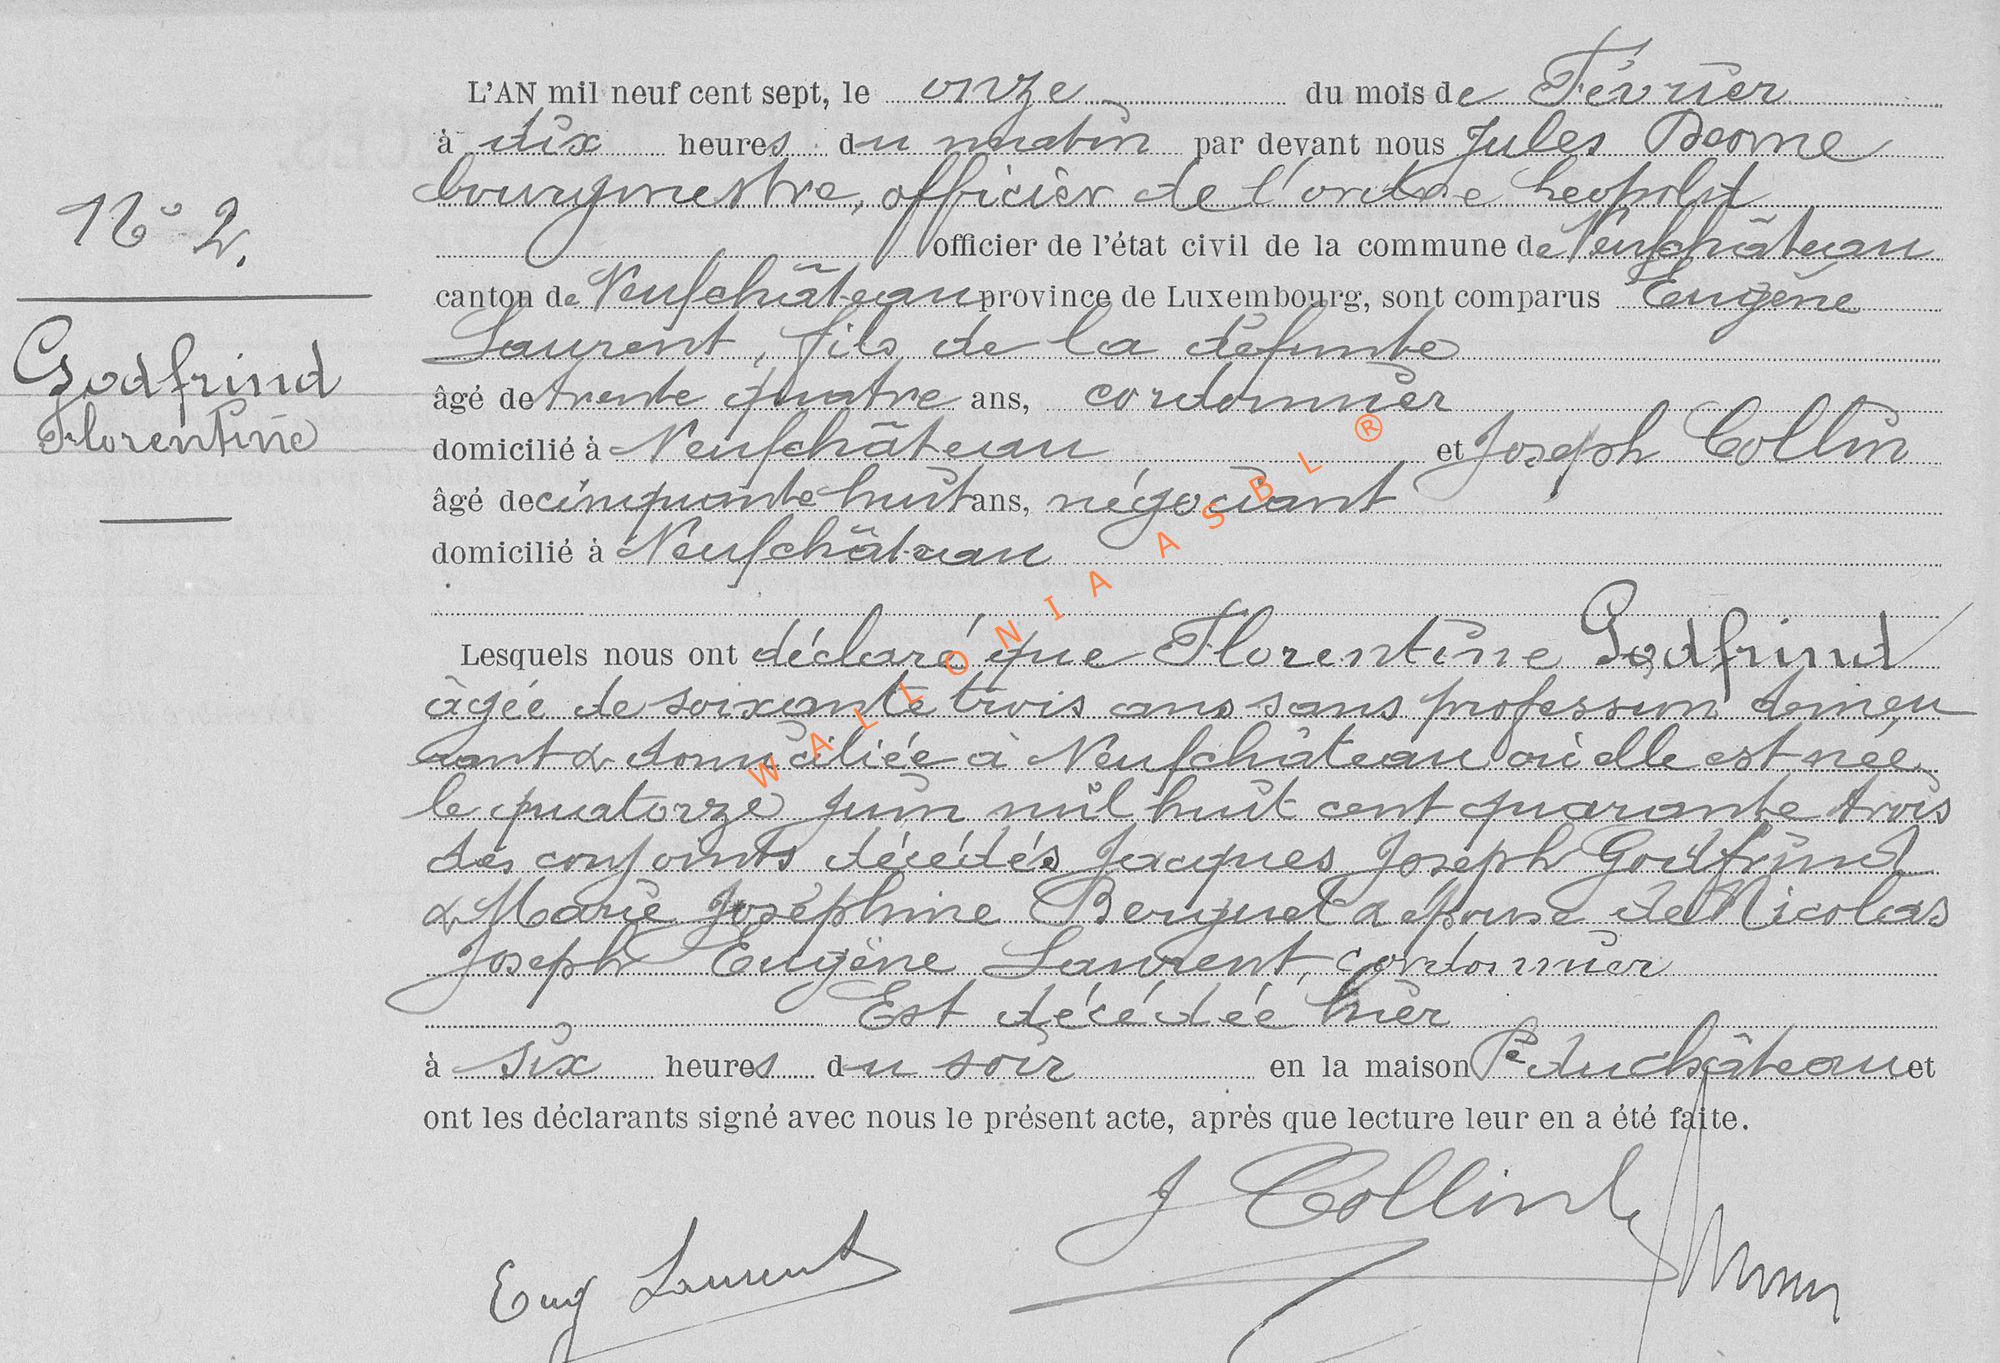 L'AN mil neuf cent sept, le onze du mois de Février
à dix heures du matin par devant nous Jules
bourgmestre, officier de l'ordre Léopold
officier de l'état civil de la commune de Neufchâteau
N° 2.
canton de Neufchâteau province de Luxembourg, sont comparus Eugène
Laurent, fils de la défunte
Godfrind
Florentine
âgé de trente quatre ans, cordonnier
domicilié à Neufchâteau et Joseph Collin
âgé de cinquante huit ans, négociant
domicilié à Neufchâteau
Lesquels nous ont déclaré que Florentine Godfrind
âgée de soixante trois ans sans profession demeu
rant & domiciliée à Neufchâteau où elle est née
le quatorze juin mil huit cent quarante trois
des conjoints décédés Jacques Joseph Godfrind
& Marie Joséphine & épouse de Nicolas
Joseph Eugène Laurent, cordonnier
Est décédée hier
à six heures du soir en la maison Pce du château et
ont les déclarants signé avec nous le présent acte, après que lecture leur en a été faite.
J Collin
Eug Laurent
WALLONIA ASBL ®